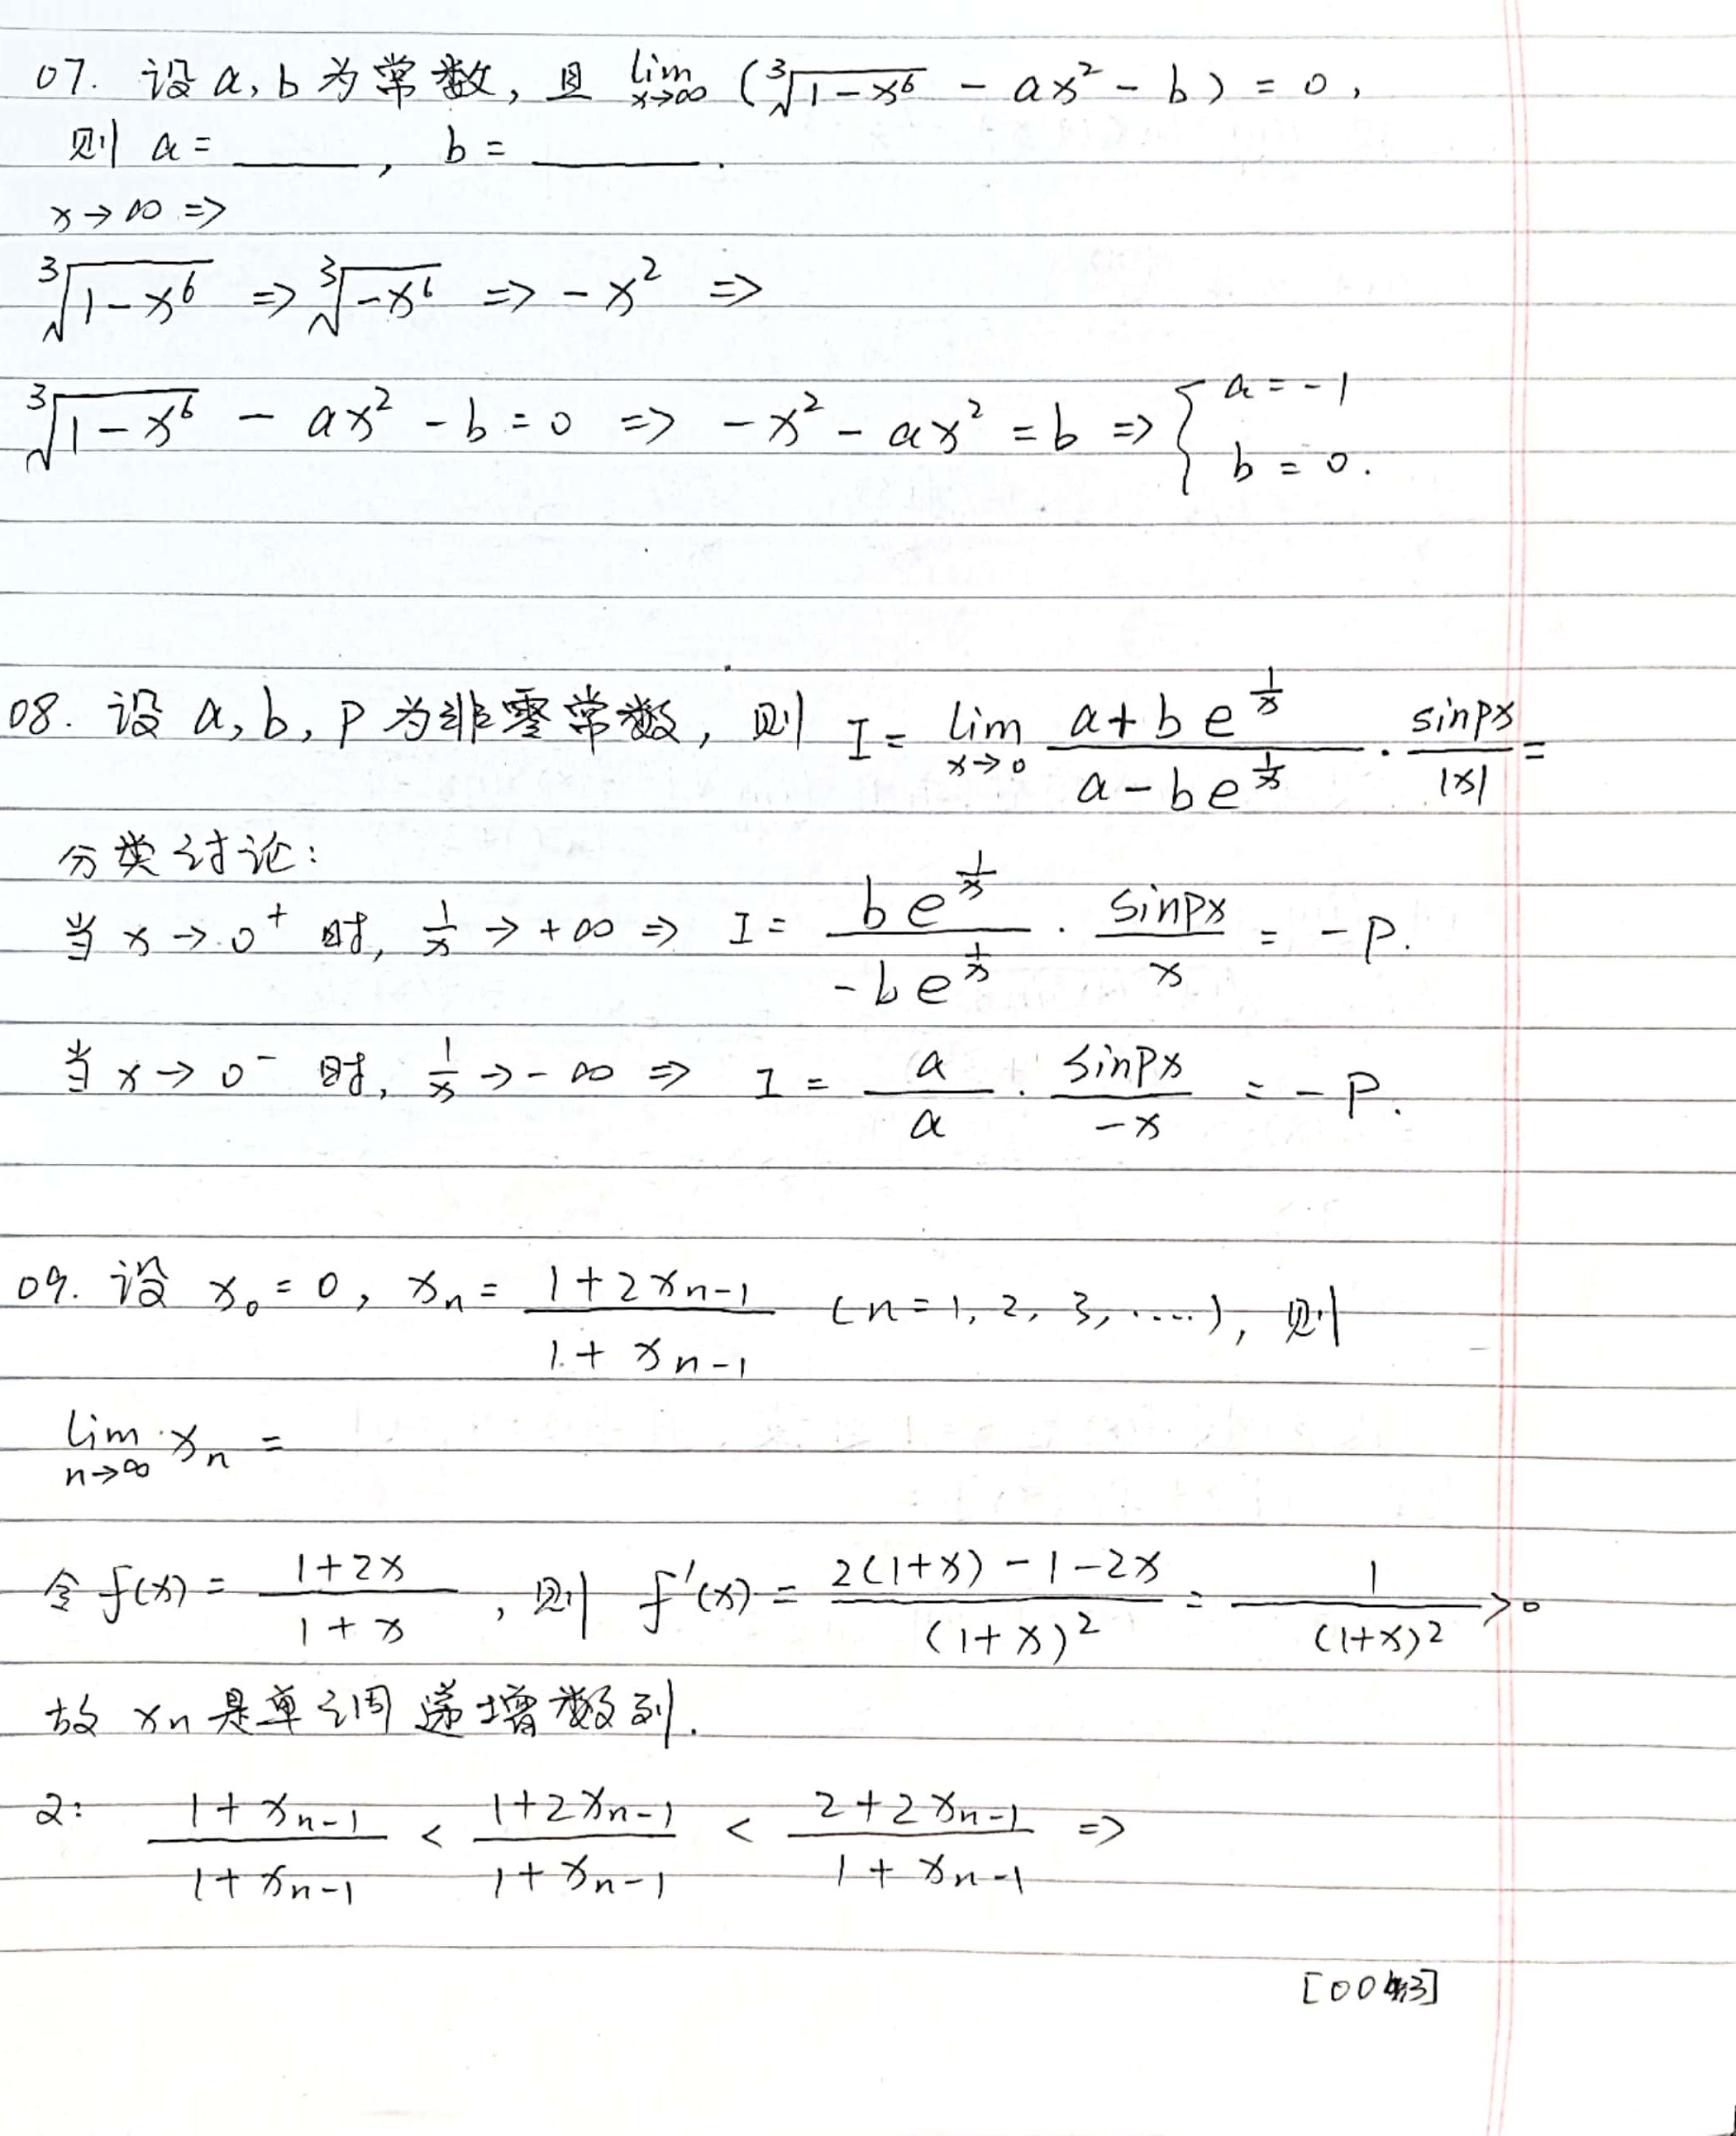 07. 设 a, b 为常数, 且 lim x→∞ (∛(1-x⁶) - ax² - b) = 0,
则 a = ____, b = ____.
x→∞ =>
∛(1-x⁶) => ∛(-x⁶) => -x² =>
∛(1-x⁶) - ax² - b = 0 => -x² - ax² = b => { a = -1
b = 0.
08. 设 a, b, p 为非零常数, 则 I = lim x→0 (a+be^(1/x))/(a-be^(1/x)) · sinpx/|x| =
分类讨论:
当 x→0⁺ 时, 1/x → +∞ => I = be^(1/x)/(-be^(1/x)) · sinpx/x = -p.
当 x→0⁻ 时, 1/x → -∞ => I = a/a · sinpx/(-x) = -p.
09. 设 x₀ = 0, xₙ = (1+2xₙ₋₁)/(1+xₙ₋₁) (n=1, 2, 3, ....), 则
lim n→∞ xₙ =
令 f(x) = (1+2x)/(1+x), 则 f'(x) = (2(1+x)-1-2x)/(1+x)² = 1/(1+x)² > 0
故 xₙ 是单调递增数列.
2: (1+xₙ₋₁)/(1+xₙ₋₁) < (1+2xₙ₋₁)/(1+xₙ₋₁) < (2+2xₙ₋₁)/(1+xₙ₋₁) =>